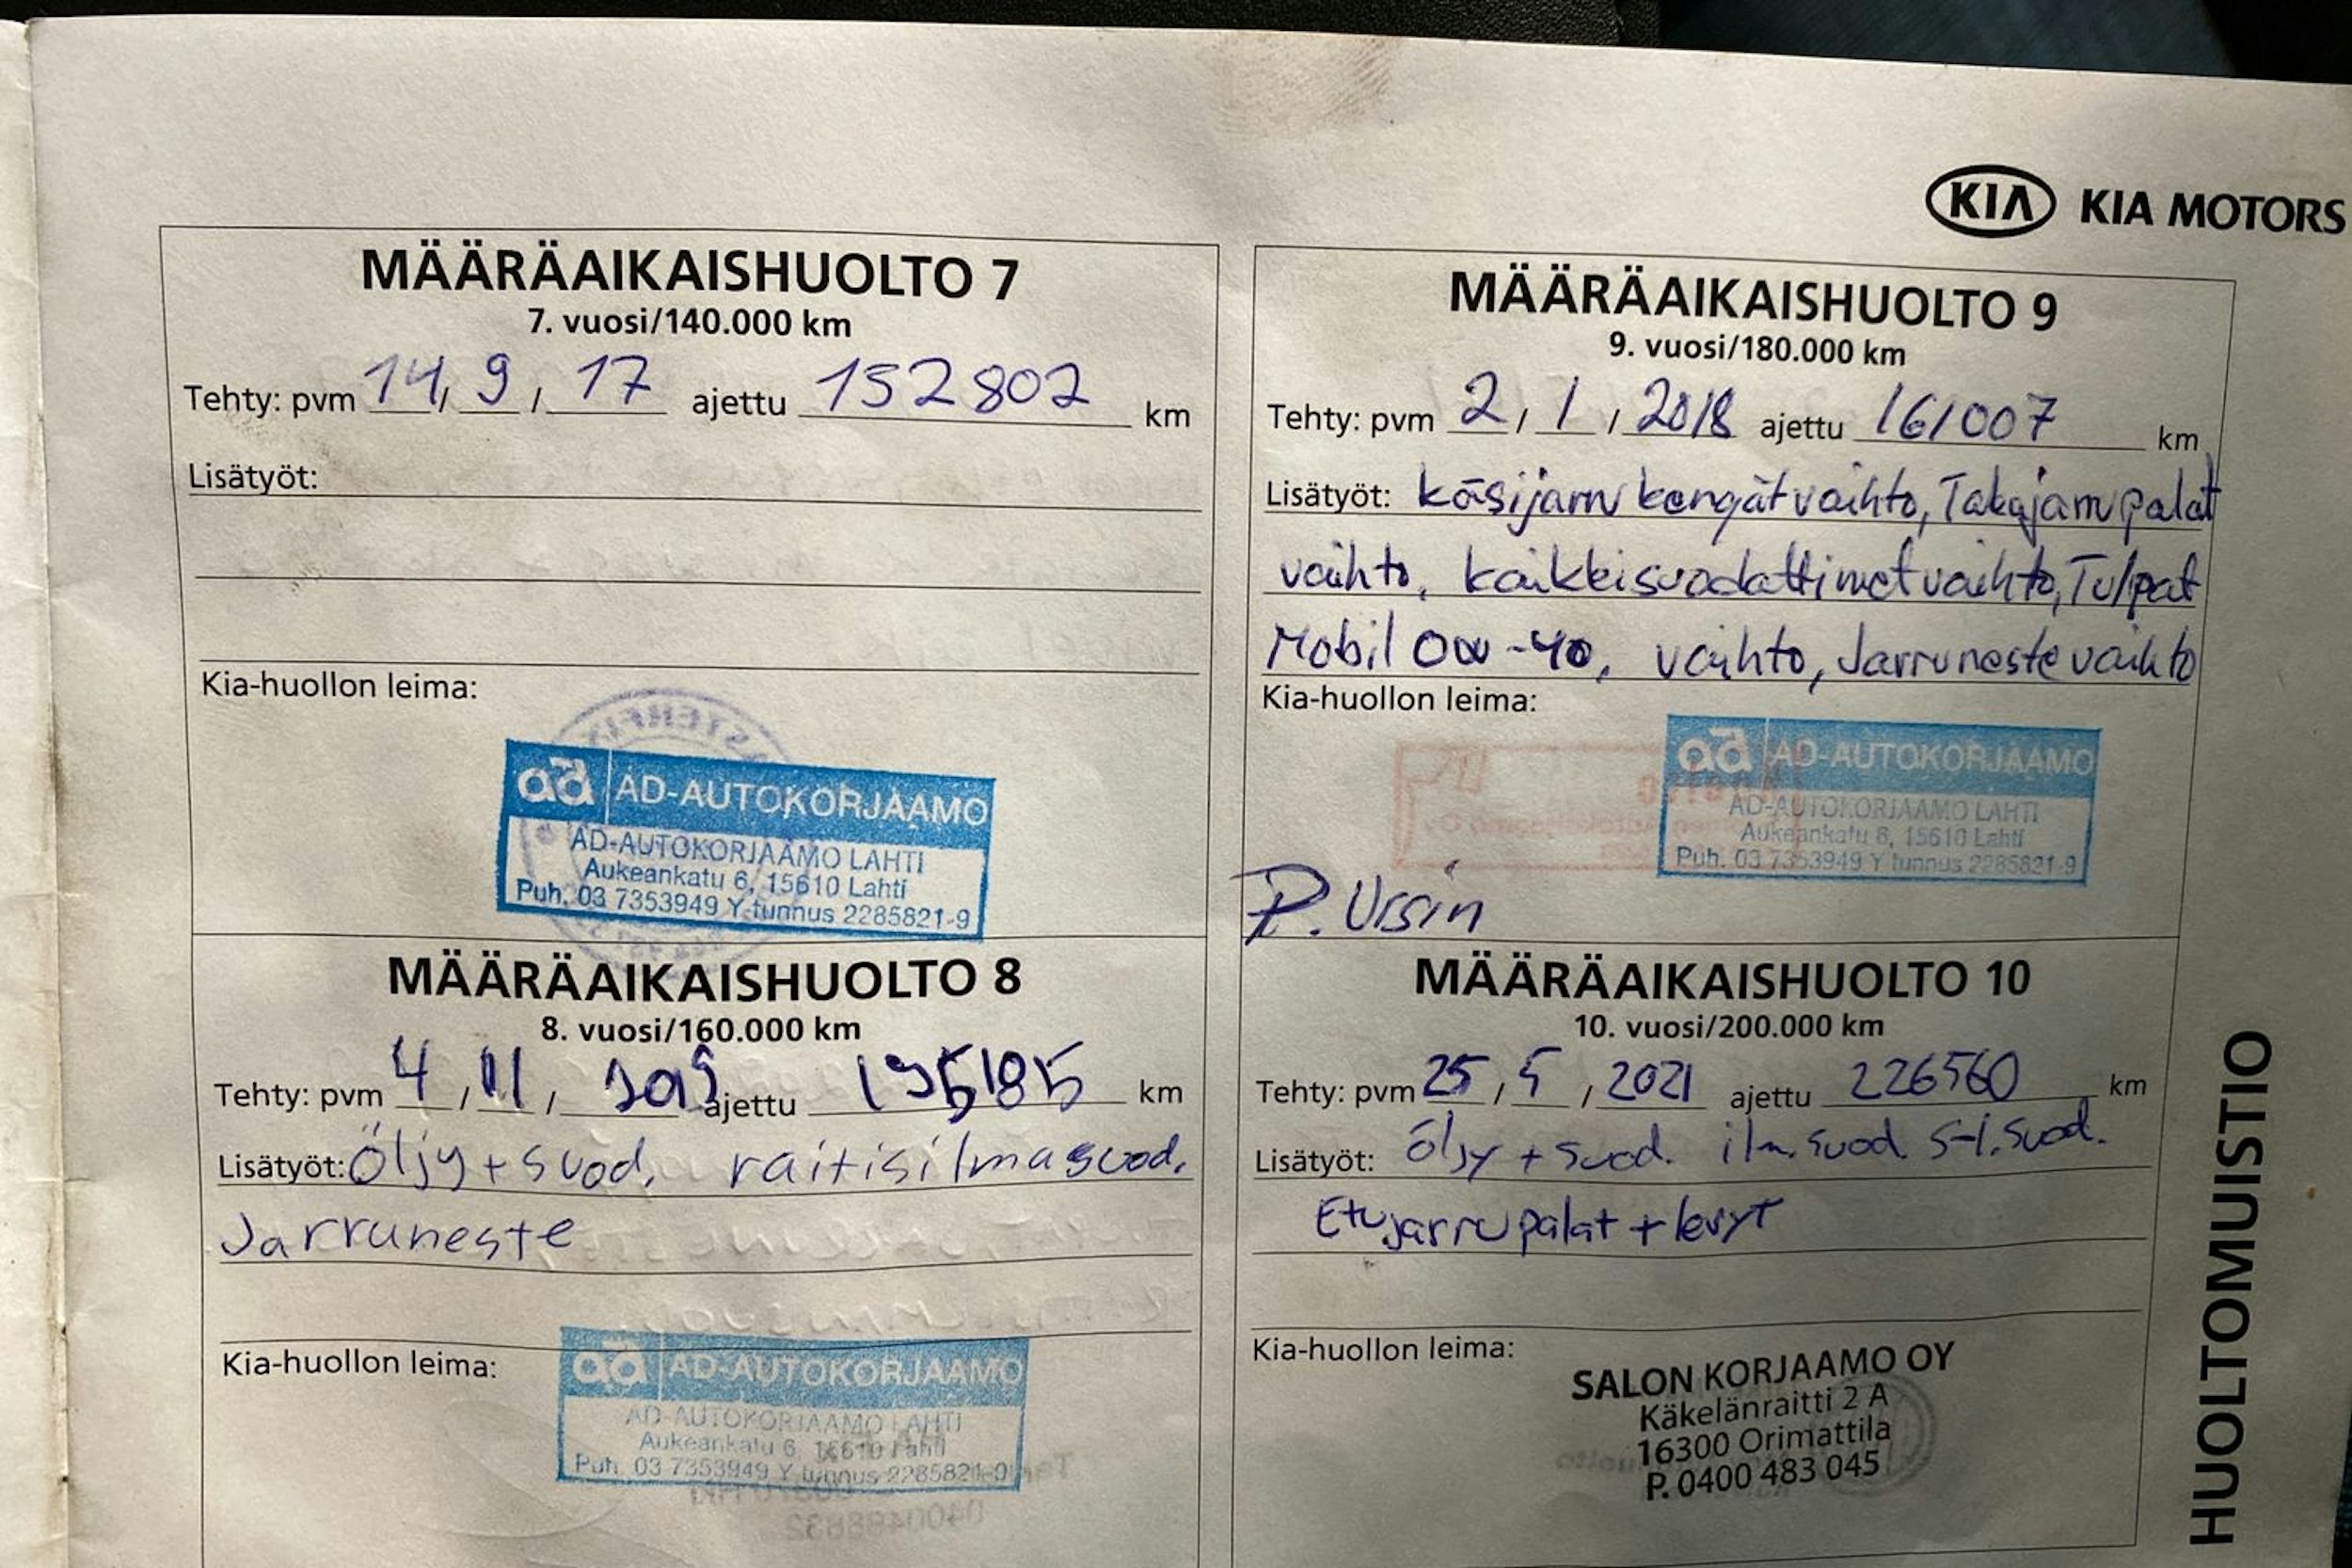 KIA KIA MOTORS
MÄÄRÄAIKAISHUOLTO 7
7. vuosi/140.000 km
Tehty: pvm 14, 9, 17 ajettu 152802 km
Lisätyöt:
Kia-huollon leima:
ad AD-AUTOKORJAAMO
AD-AUTOKORJAAMO LAHTI
Aukeankatu 6, 15610 Lahti
Puh. 03 7353949 Y-tunnus 2285821-9
MÄÄRÄAIKAISHUOLTO 8
8. vuosi/160.000 km
Tehty: pvm 4, 11, ajettu 195185 km
Lisätyöt: Öljy + suod, raitisilmasuod,
Jarruneste
Kia-huollon leima:
ad AD-AUTOKORJAAMO
AD-AUTOKORJAAMO LAHTI
Aukeankatu 6, 15610 Lahti
Puh. 03 7353949 Y tunnus 2285821-9
MÄÄRÄAIKAISHUOLTO 9
9. vuosi/180.000 km
Tehty: pvm 2, 1, 2018 ajettu 161007 km
Lisätyöt: käsijarru kengät vaihto, Takajarru palat
vaihto, kaikki suodattimet vaihto, Tulpat
Mobil 0w-40, vaihto, Jarruneste vaihto
Kia-huollon leima:
ad AD-AUTOKORJAAMO
AD-AUTOKORJAAMO LAHTI
Aukeankatu 6, 15610 Lahti
Puh. 03 7353949 Y tunnus 2285821-9
P. Ursin
MÄÄRÄAIKAISHUOLTO 10
10. vuosi/200.000 km
Tehty: pvm 25, 5, 2021 ajettu 226560 km
Lisätyöt: öljy + suod. ilm. suod. s-i. suod.
Etujarrupalat + levyt
Kia-huollon leima:
SALON KORJAAMO OY
Käkelänraitti 2 A
16300 Orimattila
P. 0400 483 045
HUOLTOMUISTIO